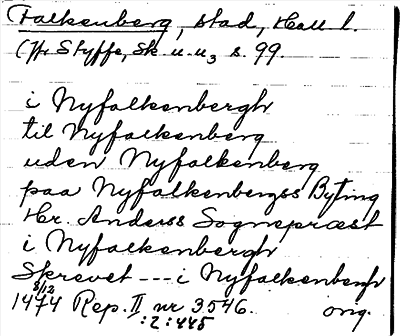 Falkenberg, stad, Hall l.
(Jfr Styffe, Sk. u. u3 s. 99.
i Nyfalkenbergh
til Nyfalkenberg
uden Nyfalkenberg
paa Nyfalkenbergss Byting
Hr. Anderss Sognepræst
i Nyfalkenbergh
Skrevet --- i Nyfalkenbergh
8/12
1474 Rep. II nr 3546. orig.
:2:445